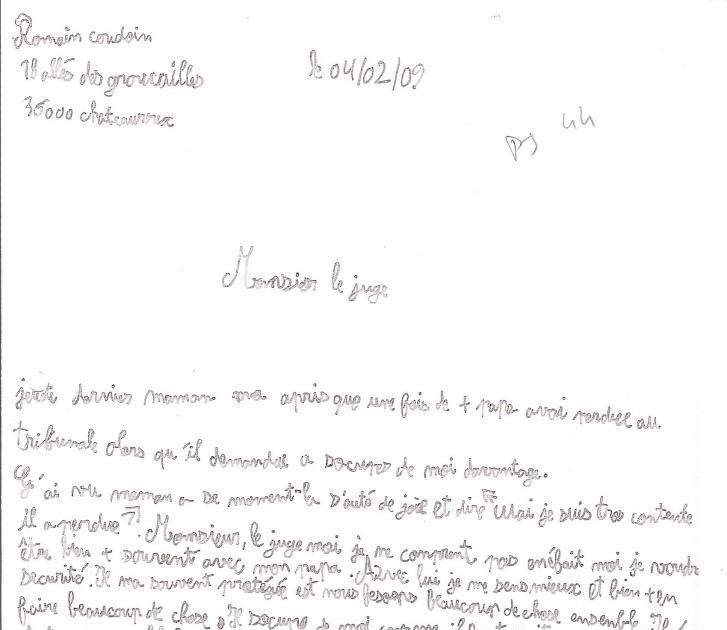 Romain coudoin
18 allés des groucailles
36000 chateauroux
le 04/02/09
44
Monsieur le juge
dernier maman ma apris que une fois de + papa avai perdue au
tribunale alors qu'il demandai a socupé de moi davantage.
G'ai vu maman a se moment-la s'auté de joie et dire "Uai je suis tres contente
il a perdue". Monsieur, le juge moi je ne comprent pas enéfait moi je voudr
être bien + souvent avec mon papa. Avec lui je me sens mieux et bien + en
securité. Il ma souvent protégée est nous fesons beaucoup de chose ensenble
faire beaucoup de chose, Il socupe de moi comme il